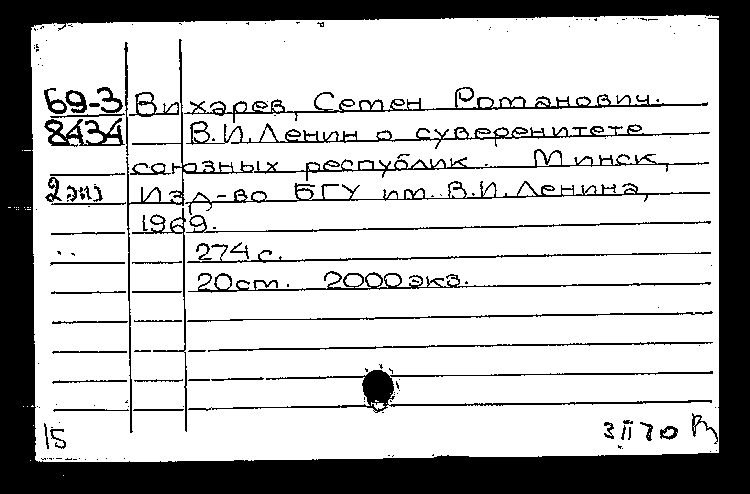 69-3 Вихарев, Семен Романович.
8434 В.И. Ленин о суверенитете
союзных республик. Минск,
2 экз Изд-во БГУ им. В.И. Ленина,
1969.
274 с.
20 cm. 2000 экз.
15 3 II 70